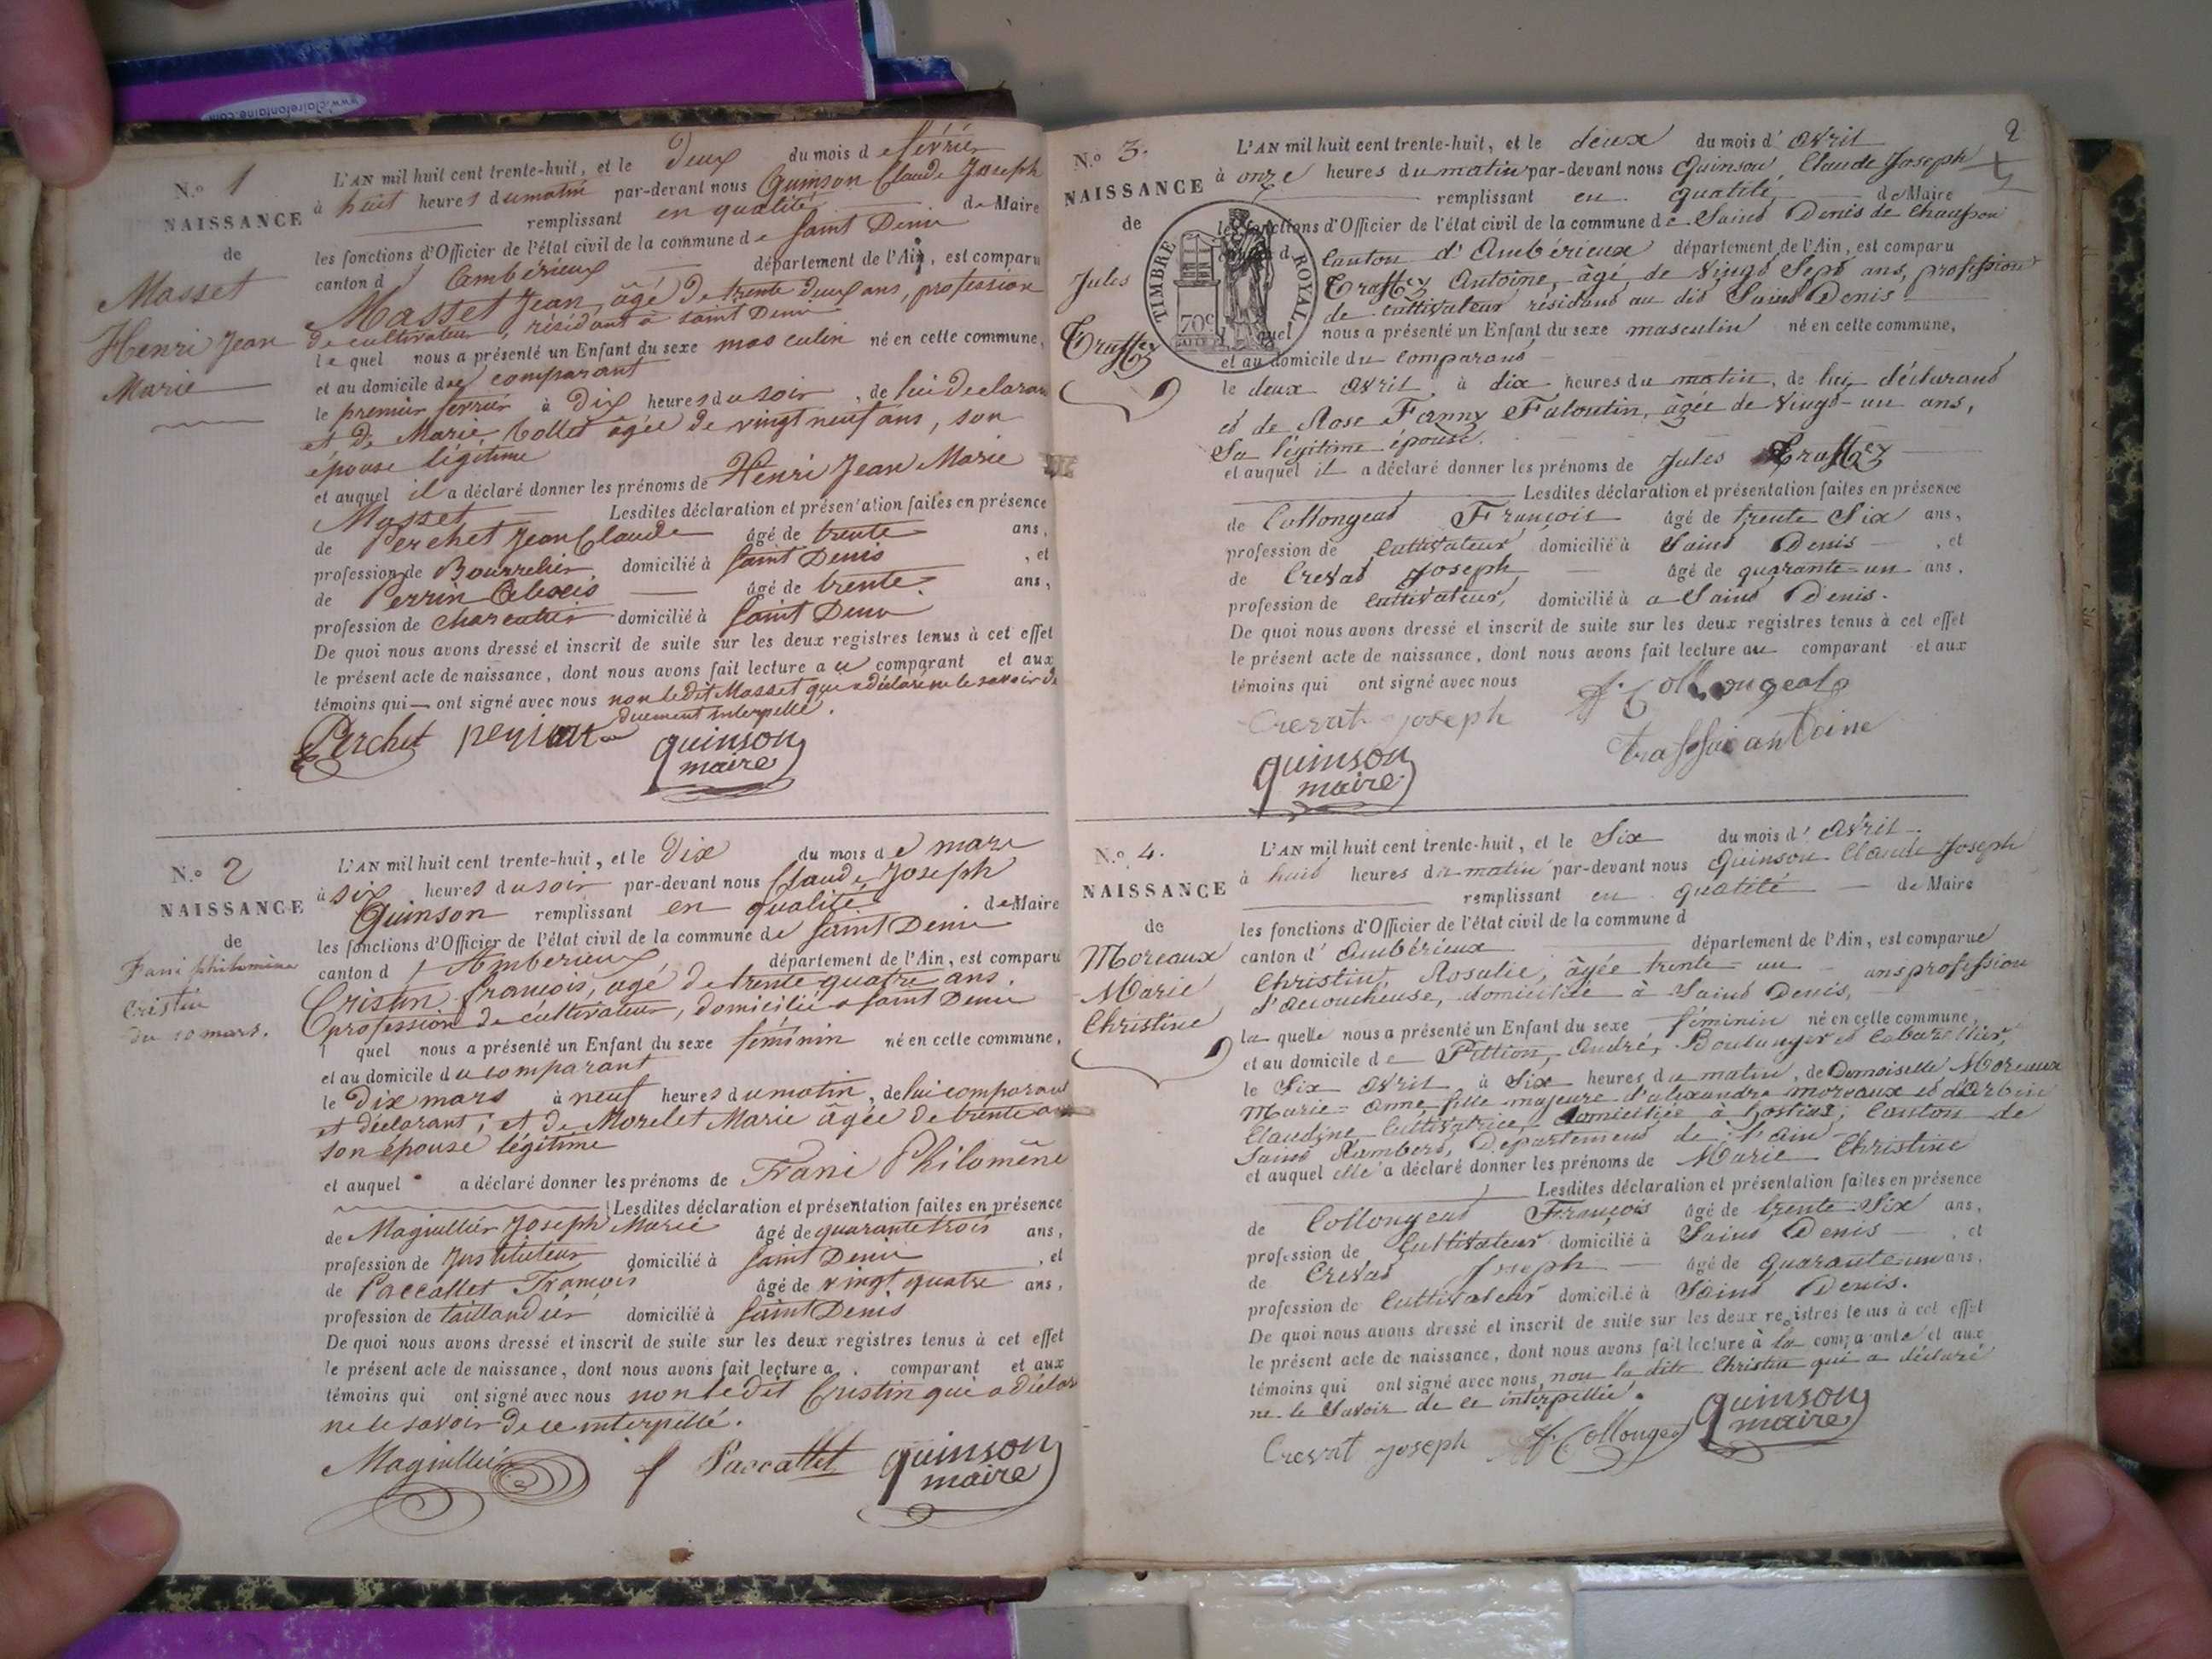 www.clairefontaine.com
N.o 1
NAISSANCE
de
Masset
Henri Jean
Marie
L'AN mil huit cent trente-huit, et le Deux du mois de février
à huit heures du matin par-devant nous Quinson Claude Joseph
remplissant en qualité de Maire
les fonctions d'Officier de l'état civil de la commune de Saint Denis
canton d' Ambérieux département de l'Ain, est comparu
Masset Jean, âgé de trente deux ans, profession
de cultivateur, résidant à Saint Denis
le quel nous a présenté un Enfant du sexe masculin né en cette commune,
et au domicile du comparant
le premier fevrier à Dix heures du soir, de lui declarant
et de Marie Collet agée de vingt neuf ans, son
épouse légitime
et auquel il a déclaré donner les prénoms de Henri Jean Marie
Masset Lesdites déclaration et présentation faites en présence
de Perchet Jean Claude âgé de trente ans,
profession de Bourrelier domicilié à Saint Denis , et
de Perrin Alexis âgé de trente ans,
profession de charcutier domicilié à Saint Denis
De quoi nous avons dressé et inscrit de suite sur les deux registres tenus à cet effet
le présent acte de naissance, dont nous avons fait lecture au comparant et aux
témoins qui ont signé avec nous non le dit Masset qui a déclaré ne le savoir de
duement interpellé.
Perchet quinson
maire
N.o 2
NAISSANCE
de
Fani philomène
Cristin
du 10 mars.
L'AN mil huit cent trente-huit, et le Dix du mois de mars
à six heures du soir par-devant nous Claude Joseph
Quinson remplissant en qualité de Maire
les fonctions d'Officier de l'état civil de la commune de Saint Denis
canton d' Amberieux département de l'Ain, est comparu
Cristin françois, agé de trente quatre ans.
profession de cultivateur, domicilié a Saint Denis
l quel nous a présenté un Enfant du sexe féminin né en cette commune,
et au domicile du comparant
le dix mars à neuf heures du matin, de lui comparant
et déclarant; et de Morelet Marie âgée de trente ans
son épouse légitime
et auquel a déclaré donner les prénoms de Frani Philomène
Lesdites déclaration et présentation faites en présence
de Magiullier Joseph Marie âgé de quarante trois ans,
profession de Instituteur domicilié à Saint Denis , et
de Paccallet François âgé de vingt quatre ans,
profession de taillandier domicilié à Saint Denis
De quoi nous avons dressé et inscrit de suite sur les deux registres tenus à cet effet
le présent acte de naissance, dont nous avons fait lecture a comparant et aux
témoins qui ont signé avec nous non le dit Cristin qui a déclar
ne le savoir de ce interpellé.
Magiullier f Paccallet quinson
maire
2
N.o 3.
NAISSANCE
de
Jules
Traffey
TIMBRE ROYAL
70c
L'AN mil huit cent trente-huit, et le deux du mois d' avril
à onze heures du matin par-devant nous Quinson, Claude Joseph
remplissant en qualité de Maire
les fonctions d'Officier de l'état civil de la commune de Saint Denis de Chausson
d Canton d'Ambérieux département de l'Ain, est comparu
Traffey Antoine, âgé de vingt sept ans, profession
de cultivateur résidant au dit Saint Denis
quel nous a présenté un Enfant du sexe masculin né en cette commune,
et au domicile du comparant
le deux avril à dix heures du matin, de lui déclarant
et de Rose Fanny Faloutin, âgée de vingt-un ans,
Sa légitime épouse.
et auquel il a déclaré donner les prénoms de Jules Traffey
Lesdites déclaration et présentation faites en présence
de Collongeat François âgé de trente Six ans,
profession de Cultivateur domicilié à Saint Denis , et
de Crevat Joseph, âgé de quarante-un ans,
profession de cultivateur, domicilié à a Saint Denis.
De quoi nous avons dressé et inscrit de suite sur les deux registres tenus à cet effet
le présent acte de naissance, dont nous avons fait lecture au comparant et aux
témoins qui ont signé avec nous
f. Collongeat
Crevat joseph
antoine
quinson
maire
N.o 4.
NAISSANCE
de
Moreaux
Marie
Christine
L'AN mil huit cent trente-huit, et le Six du mois d' avril
à huit heures du matin par-devant nous Quinson Claude Joseph
remplissant en qualité de Maire
les fonctions d'Officier de l'état civil de la commune d
canton d' Ambérieux département de l'Ain, est comparue
Christin, Rosalie, âgée trente-un ans profession
d'accoucheuse, domiciliée à Saint Denis,
la quelle nous a présenté un Enfant du sexe féminin né en cette commune,
et au domicile de Pittion, André, Boulanger et Cabaretier,
le Six avril à Six heures du matin, de Demoiselle Moreaux
Marie-Anne fille majeure d'alexandre moreaux et d'Arbin
Claudine Cultivatrice, domiciliée à hostiaz, Canton de
Saint Rambert, Département de l'ain
et auquel elle a déclaré donner les prénoms de Marie Christine
Lesdites déclaration et présentation faites en présence
de Collongeat François âgé de trente-Six ans,
profession de Cultivateur domicilié à Saint Denis , et
de Crevat Joseph âgé de quarante-un ans,
profession de Cultivateur domicilié à Saint Denis.
De quoi nous avons dressé et inscrit de suite sur les deux registres tenus à cet effet
le présent acte de naissance, dont nous avons fait lecture à la comparante et aux
témoins qui ont signé avec nous, non la dite Christin qui a déclaré
ne le Savoir de ce interpellée.
Crevat joseph f. Collongeat quinson
maire